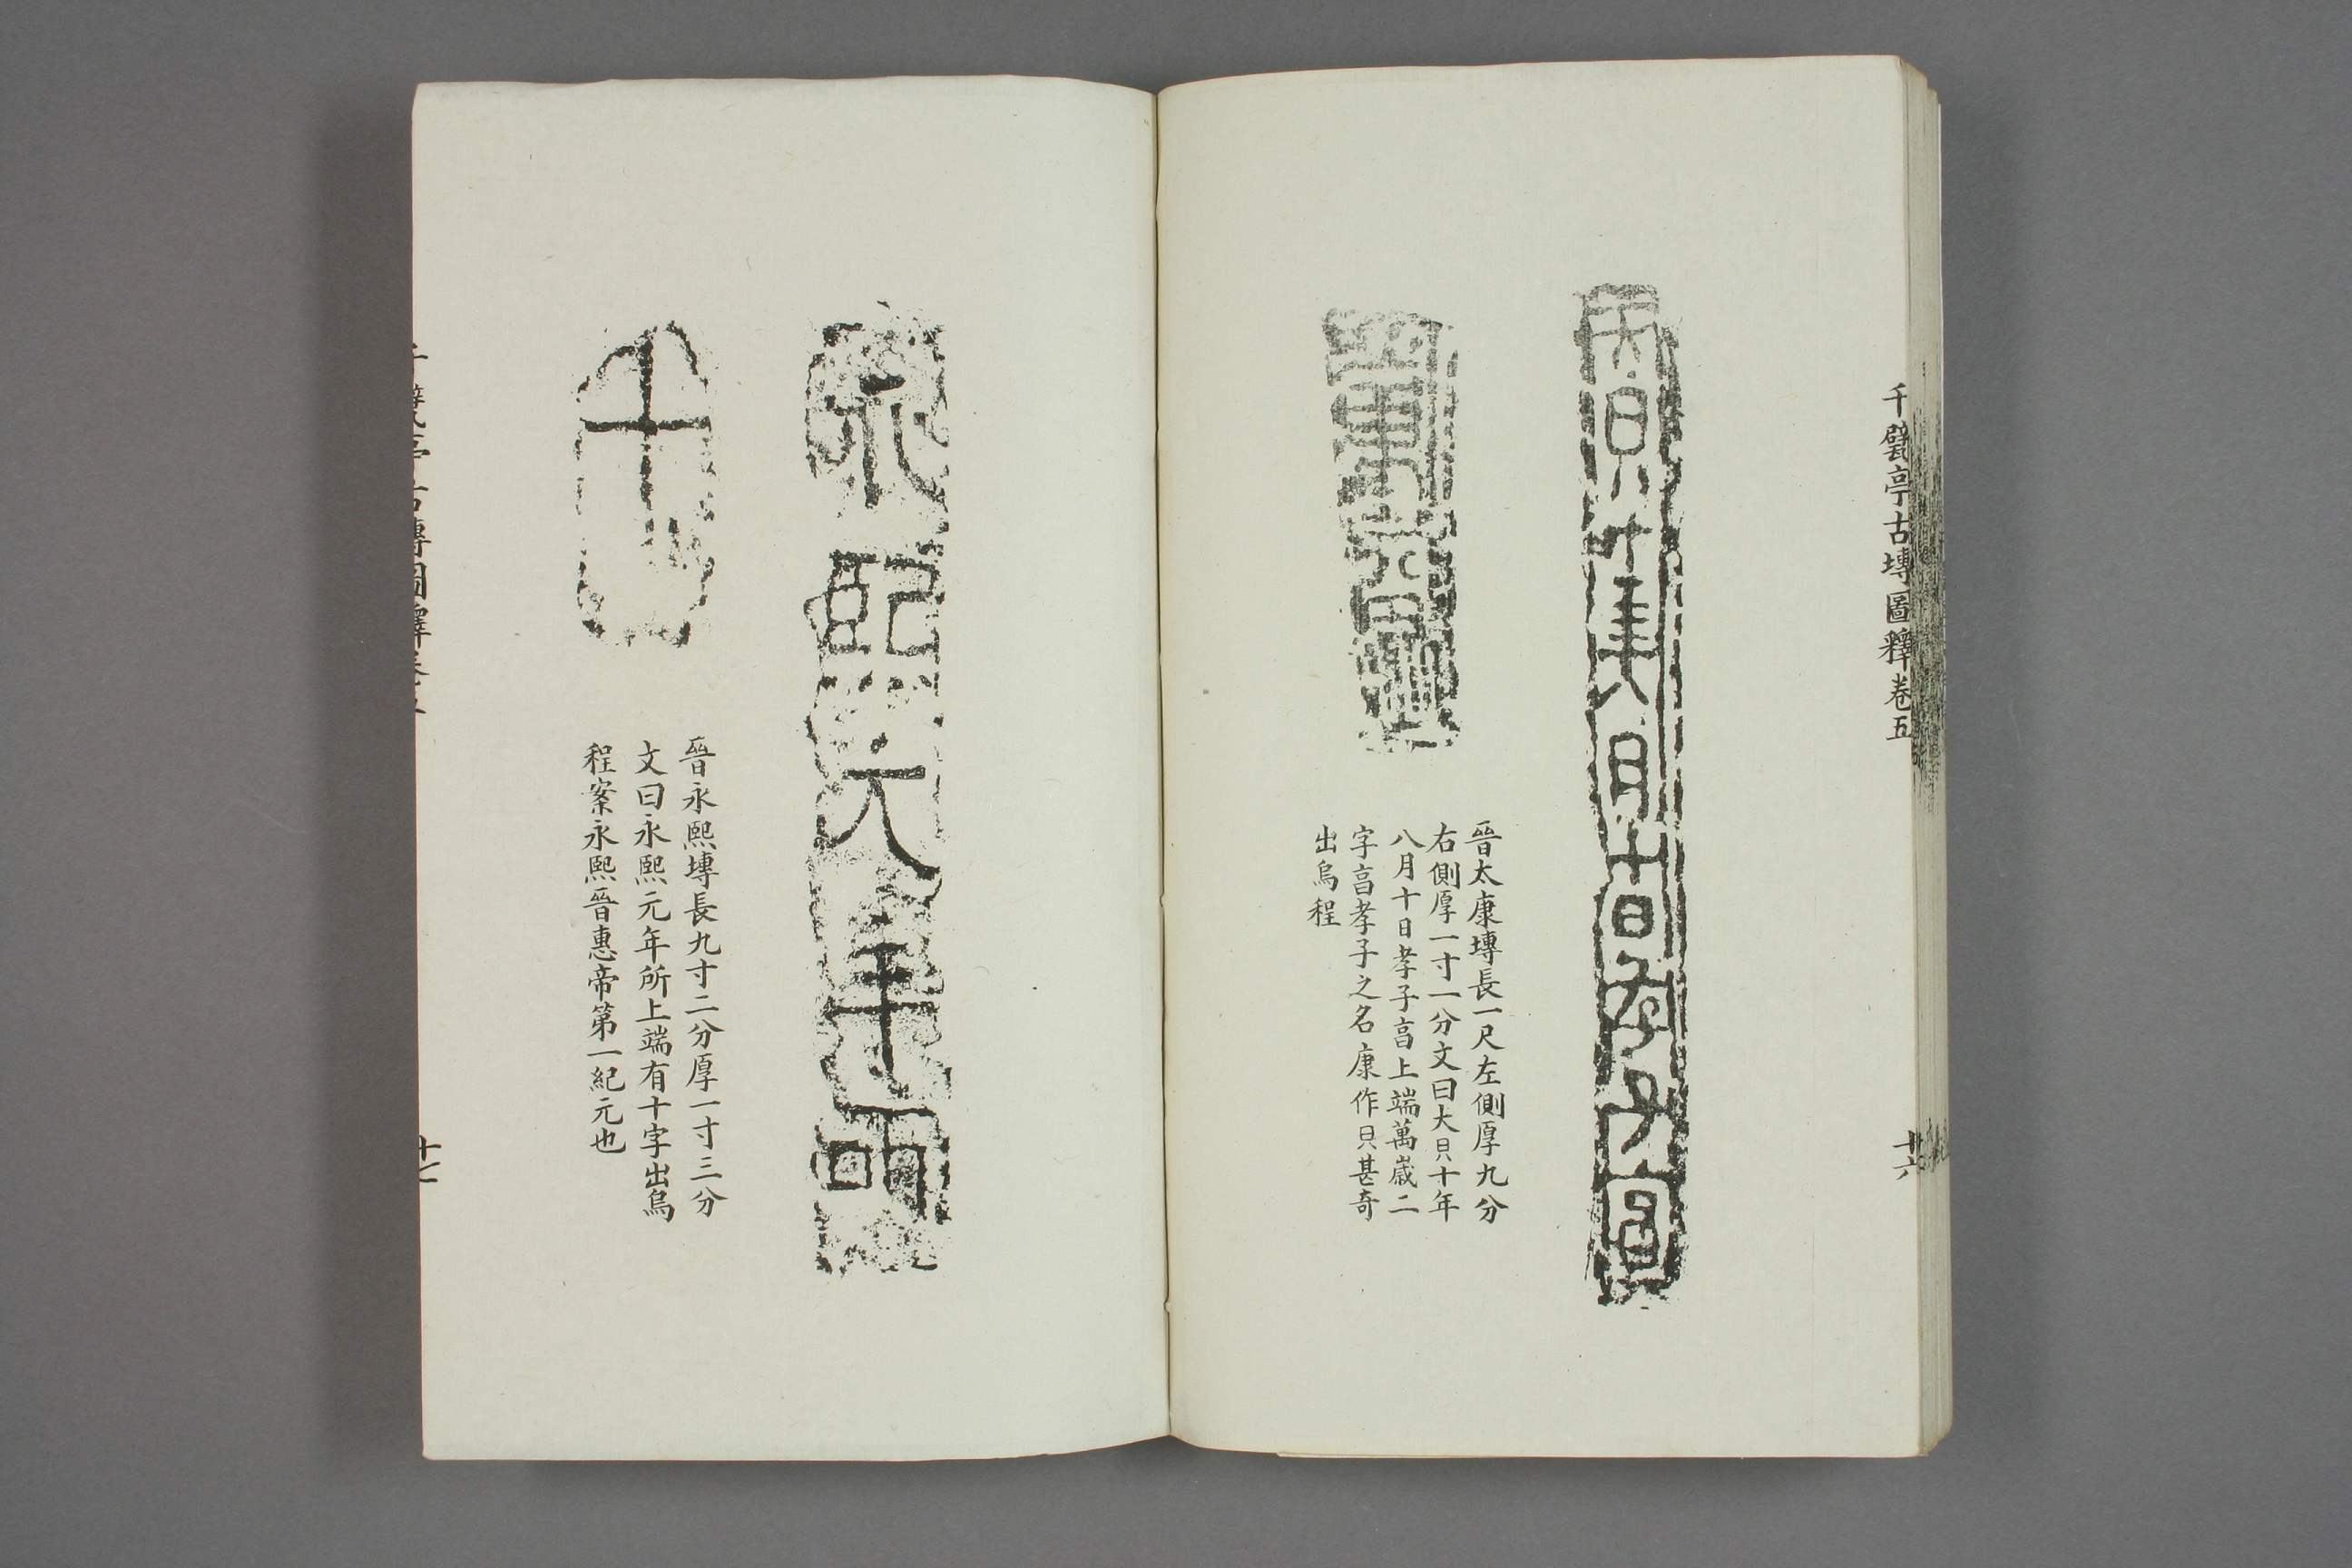 千甓亭古塼圖釋卷五
十六
晉太康塼長一尺左側厚九分
右側厚一寸一分文曰大㠪十年
八月十日孝子亯上端萬歲二
字亯孝子之名康作㠪甚奇
出烏程
永熙元年所
晉永熙塼長九寸二分厚一寸三分
文曰永熙元年所上端有十字出烏
程案永熙晉惠帝第一紀元也
十
十七